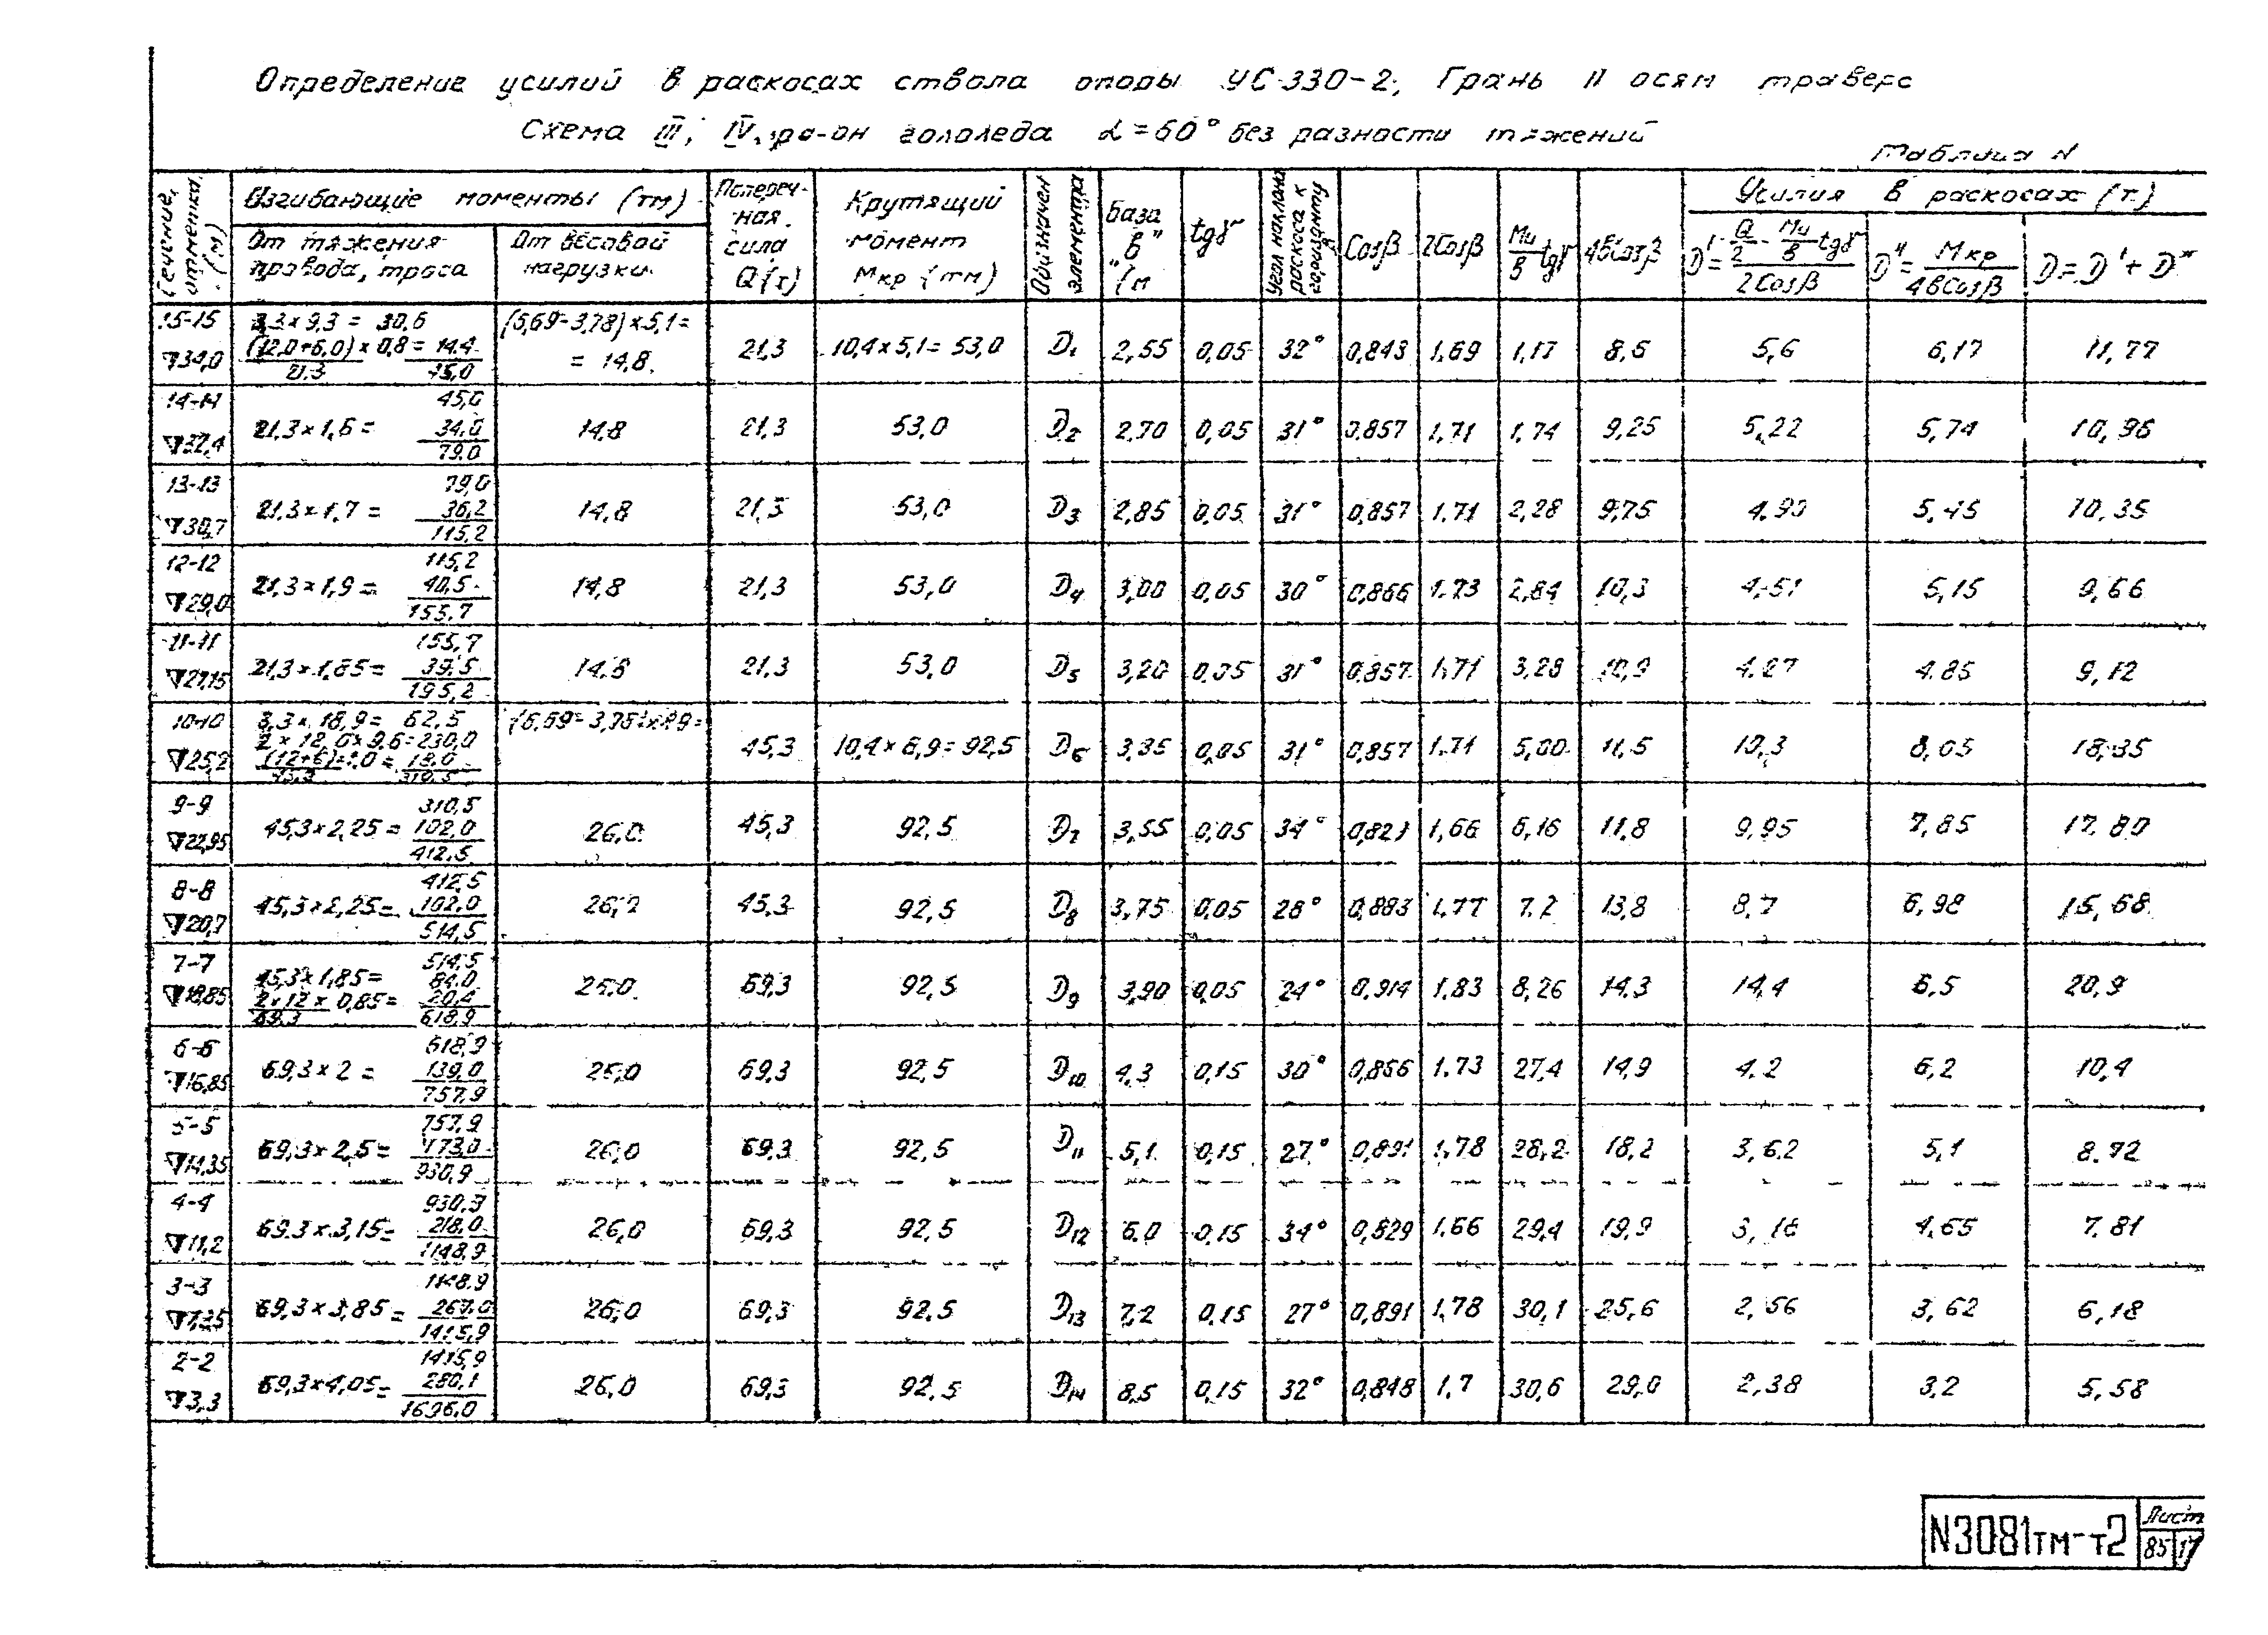 Определение усилий в раскосах ствола опоры УС 330-2; Грань II осям траверс
Схема III, IV, ра-он гололеда α = 60° без разности тяжений
Таблица N
Сечение, отметка (м) | Изгибающие моменты (тм) | Поперечная сила Q (т) | Крутящий момент Мкр (тм) | Обозначен элемента | База "в" (м | tgγ | Угол наклона раскоса к горизонту β | Cosβ | 2Cosβ | Ми/в tgγ | 4вCosβ | Усилия в раскосах (т)
От тяжения провода, троса | От весовой нагрузки | D' = (Q/2 - Ми/в tgγ)/2Cosβ | D" = Мкр/4вCosβ | D = D' + D"
15-15 ▽34,0 | 3,3 × 9,3 = 30,6 (12,0+6,0) × 0,8 = 14.4 21.3 45,0 | (6,69-3,78) × 5,1 = = 14,8 | 21,3 | 10,4 × 5,1 = 53,0 | D₁ | 2,55 | 0,05 | 32° | 0,843 | 1,69 | 1,17 | 8,6 | 5,6 | 6,17 | 11,77
14-14 ▽32,4 | 21,3 × 1,6 = 45,0 34,0 79,0 | 14,8 | 21,3 | 53,0 | D₂ | 2,70 | 0,05 | 31° | 0,857 | 1,71 | 1,74 | 9,25 | 5,22 | 5,74 | 10,96
13-13 ▽30,7 | 21,3 × 1,7 = 79,0 36,2 115,2 | 14,8 | 21,3 | 53,0 | D₃ | 2,85 | 0,05 | 31° | 0,857 | 1,71 | 2,28 | 9,75 | 4,90 | 5,45 | 10,35
12-12 ▽29,0 | 21,3 × 1,9 = 115,2 40,5 155,7 | 14,8 | 21,3 | 53,0 | D₄ | 3,00 | 0,05 | 30° | 0,866 | 1.73 | 2,84 | 10,3 | 4,51 | 5,15 | 9,66
11-11 ▽27,15 | 21,3 × 1,85 = 155,7 39,5 195,2 | 14,8 | 21,3 | 53,0 | D₅ | 3,20 | 0,05 | 31° | 0,857 | 1,71 | 3,28 | 10,9 | 4.27 | 4.85 | 9,12
10-10 ▽25,2 | 3,3 × 18,9 = 62,5 2 × 12,0 × 9,6 = 230,0 (12+6) × 1,0 = 18.0 45,3 310,5 | 45,3 | 10,4 × 8,9 = 92,5 | D₆ | 3,35 | 0,05 | 31° | 0,857 | 1.71 | 5,00 | 11,5 | 10,3 | 8,05 | 18,35
9-9 ▽22,95 | 45,3 × 2,25 = 310,5 102,0 412,5 | 26,0 | 45,3 | 92,5 | D₇ | 3,55 | 0,05 | 34° | 0,829 | 1,66 | 6,16 | 11,8 | 9,95 | 7,85 | 17.80
8-8 ▽20,7 | 45,3 × 2,25 = 412,5 102.0 514,5 | 26,0 | 45,3 | 92,5 | D₈ | 3,75 | 0,05 | 28° | 0,883 | 1,77 | 7.2 | 13,8 | 8,7 | 6,98 | 15,68
7-7 ▽18,85 | 45,3 × 1,85 = 514,5 84.0 2 × 12 × 0,85 = 20,4 69,3 618,9 | 26,0 | 69,3 | 92,5 | D₉ | 3,90 | 0,05 | 24° | 0,914 | 1.83 | 8,26 | 14.3 | 14,4 | 6,5 | 20,9
6-6 ▽16,85 | 69,3 × 2 = 618,9 139,0 757,9 | 26,0 | 69,3 | 92,5 | D₁₀ | 4.3 | 0,15 | 30° | 0,866 | 1.73 | 27,4 | 14,9 | 4.2 | 6,2 | 10,4
5-5 ▽14,35 | 69,3 × 2,5 = 757,9 173,0 930,9 | 26,0 | 69,3 | 92,5 | D₁₁ | 5,1 | 0,15 | 27° | 0,891 | 1,78 | 28,2 | 18,2 | 3,62 | 5,1 | 8.72
4-4 ▽11,2 | 69.3 × 3,15 = 930,9 218,0 1148,9 | 26,0 | 69,3 | 92,5 | D₁₂ | 6.0 | 0,15 | 34° | 0,829 | 1.66 | 29,4 | 19,9 | 3,16 | 4,65 | 7.81
3-3 ▽7,35 | 69,3 × 3,85 = 1148.9 267.0 1415,9 | 26,0 | 69,3 | 92.5 | D₁₃ | 7,2 | 0.15 | 27° | 0,891 | 1,78 | 30,1 | 25,6 | 2,56 | 3,62 | 6,18
2-2 ▽3,3 | 69,3 × 4,05 = 1415,9 280,1 1696,0 | 26,0 | 69,3 | 92,5 | D₁₄ | 8,5 | 0,15 | 32° | 0,848 | 1,7 | 30,6 | 29,0 | 2,38 | 3,2 | 5,58
N3081тм-т2
Лист
85 17